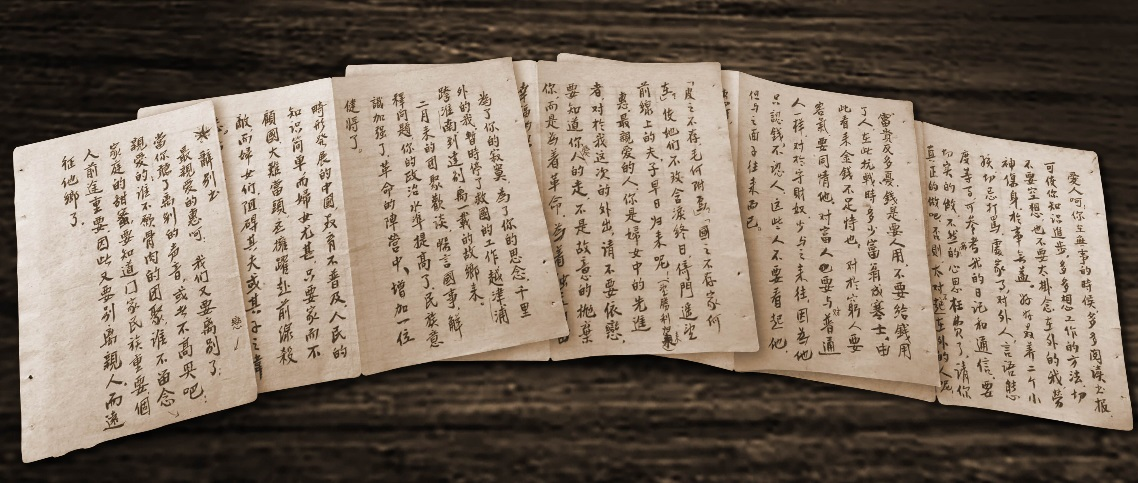 辭别书
最親愛的惠呵、我们又要离别了、
當你聽了离别的声音,或者不高興吧!
親愛的誰不願骨肉的团聚誰不留念
家庭的甜蜜要知道门家民族重要個
人前途重要因此又要别离親人而遠
征他鄉了。
時形發展的中國最有不普及人民的
知识简单而婦女尤甚只要家而不
顾國大难當頭 躍赴前線殺
敵而婦女们阻碍其夫或其子之
為了你的寂寞,為了你的思念千里
外的我暫時停了救國的工作越津浦
跨淮南到達别离一載的故鄉来。
二月来的团聚歡谈暢言國事解
釋问题你的政治水準提高了民族意
識加强了革命的陣营中、增加一位
健将了。
「皮之不存毛何附焉」國之不存家何
在、後他们不致含淚终日倚門遥望
前線上的夫子早日归来呢
惠最親愛的人你是婦女中的先進
者對於我這次的外出,請不要依戀、
要知道你人的走不是故意的抛棄
你而是為着革命、為着
富貴及多憂、錢是要人用不要给錢用
了人在此抗戰時多少富翁成寒士、由
此看来金錢不足恃也、對於穷親人要
客氣要同情他對富人也要与普通
人一样、對於守財奴少与之来往因為他
只認錢不認人這些人不要看起他
但与之面子往来而已。
愛人呵你在無事的時候多多阅读书报
可使你知识進步,多多想工作的方法切
不要空想、也不要太掛念在外的我劳
神傷身於事無益。好好 養二个小
孩切忌打骂 家了對外人言語態
度等等可参考我的日记和通信要
切实的做不 我的心思枉费了請你
真正的做吧否則太對 起在外的人呢